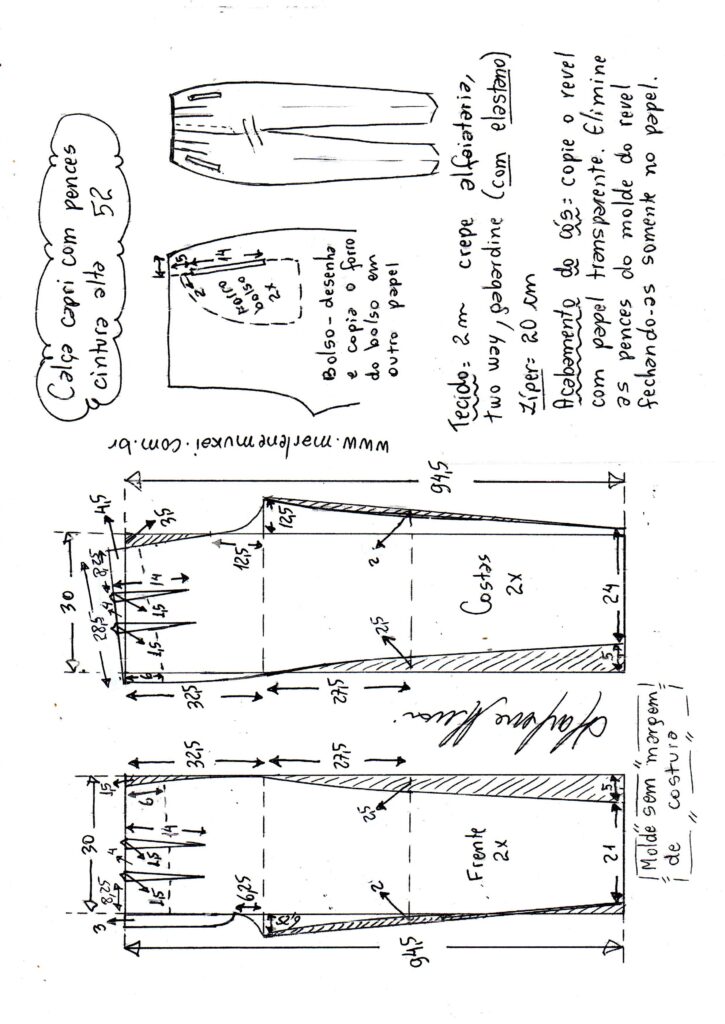 Calça capri com pences
cintura alta 52
www.marlenemukai.com.br
1,5
14
2
Forro
bolso
2x
Bolso - desenha
e copia o forro
do bolso em
outro papel
Tecido: 2m crepe alfaiataria,
two way, gabardine (com elastano)
Zíper: 20 cm
Acabamento do cós: copie o revel
com papel transparente. Elimine
as pences do molde do revel
fechando-as somente no papel.
3
30
1,5
8,25
4
6
1,5
1,5
14
32,5
6,25
6,25
27,5
2
2,5
94,5
Frente
2x
21
5
30
28,5
4,5
8,25
4
3,5
6
1,5
1,5
14
32,5
12,5
12,5
27,5
2,5
2
94,5
Costas
2x
5
24
Molde sem margem
de costura